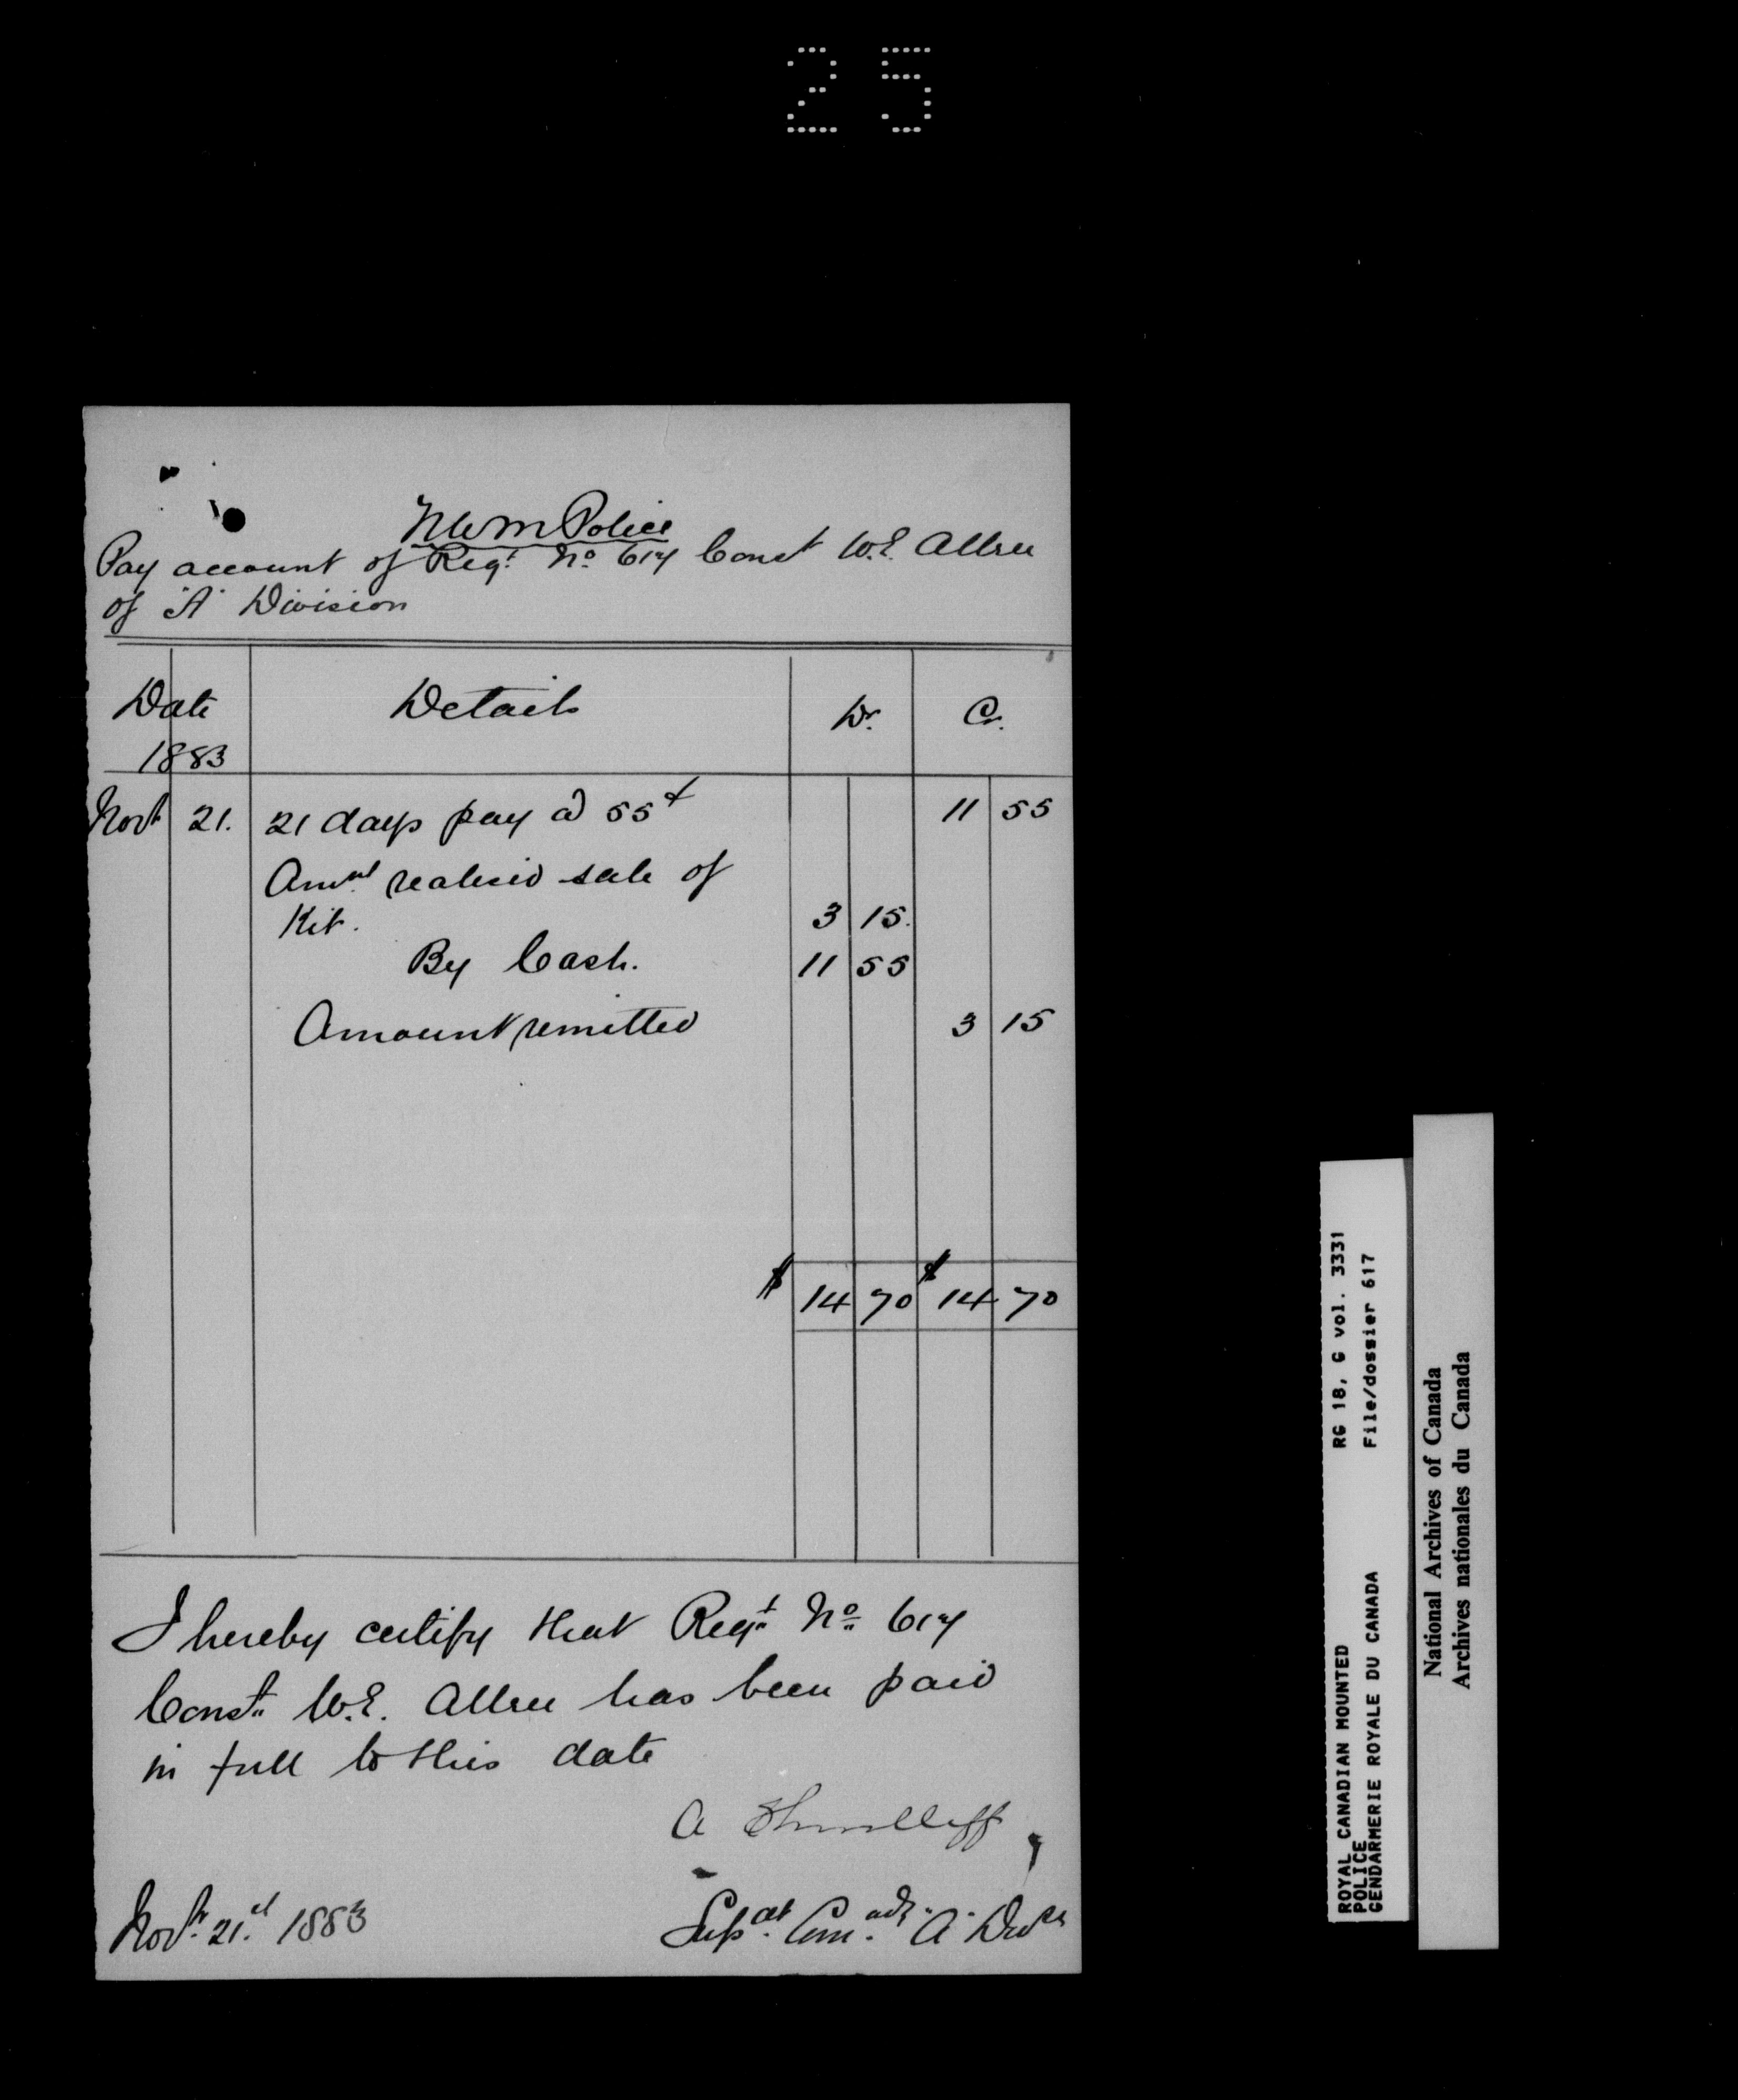 25
N.W.M. Police
Pay account of Reg.t No 617 Const W.E. Allen
of "A" Division
Date Details Dr. Cr.
1883
Novr 21. 21 days pay @ 55¢ 11 55
Amnt realised sale of
Kit. 3 15.
By Cash. 11 55
Amount remitted 3 15
$ 14 70 $ 14 70
I hereby certify that Reg.t No 617
Const. W.E. Allen has been paid
in full to this date
A Shurtliff
Nov.r 21.st 1883 Supt. Com.adg "A" Divn
ROYAL CANADIAN MOUNTED RG 18, G vol. 3331
POLICE File/dossier 617
GENDARMERIE ROYALE DU CANADA
National Archives of Canada
Archives nationales du Canada